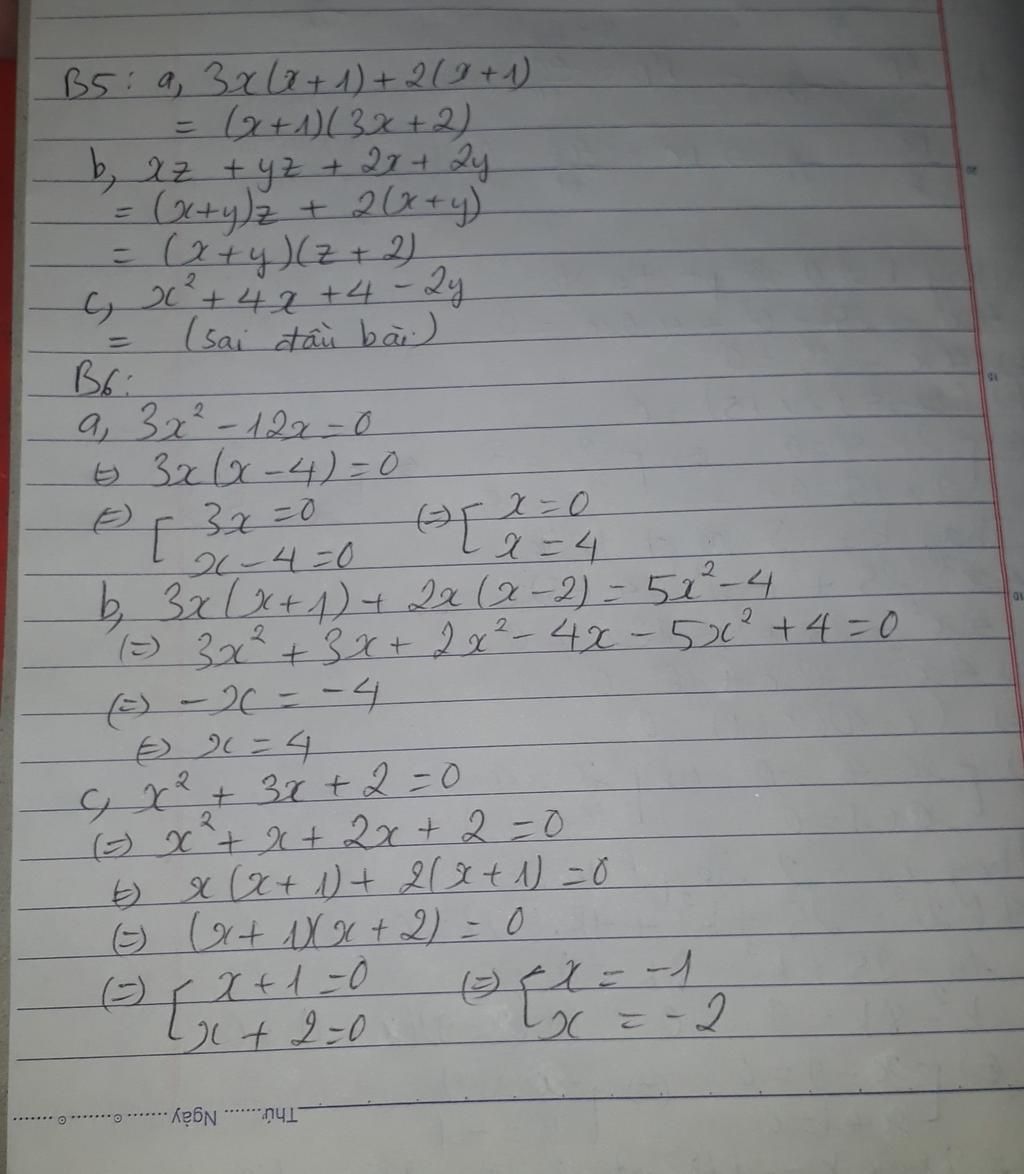 B5: a, 3x(x+1)+2(x+1)
= (x+1)(3x+2)
b, xz + yz + 2x + 2y
= (x+y)z + 2(x+y)
= (x+y)(z+2)
c, x² + 4x + 4 - 2y
= (Sai đầu bài)
B6:
a, 3x² - 12x = 0
⇔ 3x(x-4) = 0
⇔ [ 3x = 0 ⇔ [ x = 0
x - 4 = 0 x = 4
b, 3x(x+1) + 2x(x-2) = 5x² - 4
(=) 3x² + 3x + 2x² - 4x - 5x² + 4 = 0
(=) -x = -4
⇔ x = 4
c, x² + 3x + 2 = 0
(=) x² + x + 2x + 2 = 0
⇔ x(x+1) + 2(x+1) = 0
(=) (x+1)(x+2) = 0
(=) [ x+1 = 0 (=) [ x = -1
x + 2 = 0 x = -2
Thứ ....... Ngày ...................